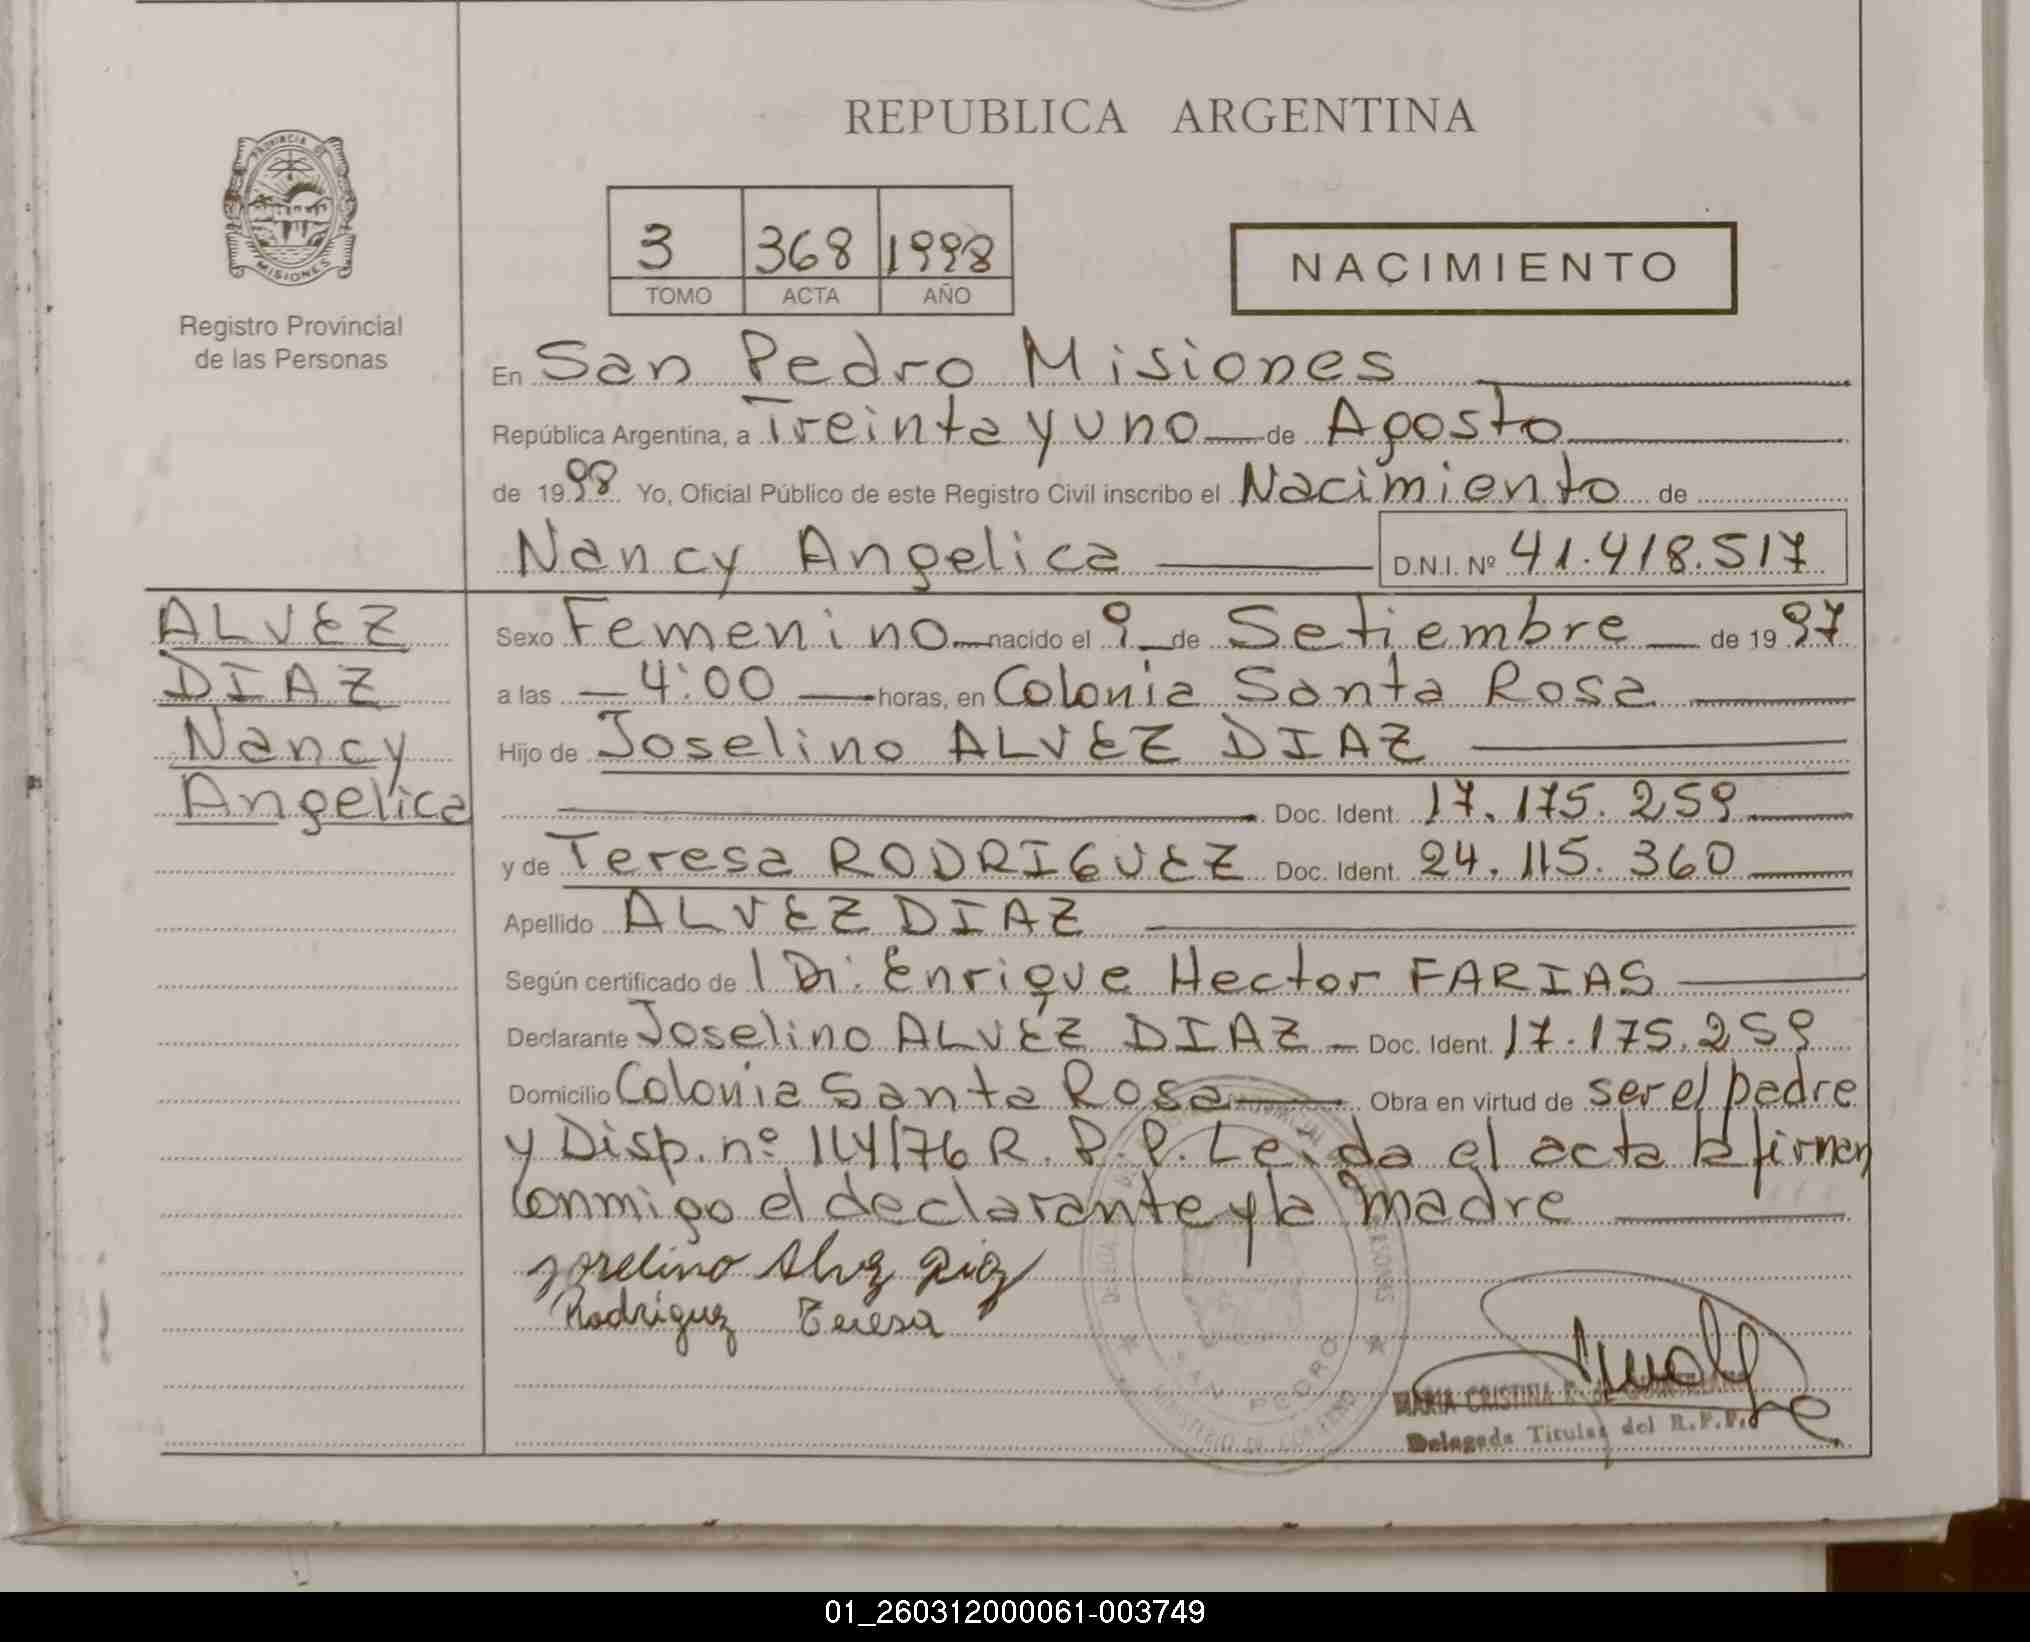 REPUBLICA ARGENTINA
PROVINCIA DE
MISIONES
Registro Provincial
de las Personas
3 368 1998
TOMO ACTA AÑO
NACIMIENTO
En San Pedro Misiones
República Argentina, a Treinta y uno de Agosto
de 1998 Yo, Oficial Público de este Registro Civil inscribo el Nacimiento de
Nancy Angelica D.N.I. Nº 41.418.517
ALVEZ
DIAZ
Nancy
Angelica
Sexo Femenino nacido el 9 de Setiembre de 1997
a las 4:00 horas, en Colonia Santa Rosa
Hijo de Joselino ALVEZ DIAZ
Doc. Ident. 17.175.259
y de Teresa RODRIGUEZ Doc. Ident. 24.115.360
Apellido ALVEZ DIAZ
Según certificado de l Dr. Enrique Hector FARIAS
Declarante Joselino ALVEZ DIAZ Doc. Ident. 17.175.259
Domicilio Colonia Santa Rosa Obra en virtud de ser el padre
y Disp. nº 114/76 R.P.P. Leida el acta la firman
conmigo el declarante y la madre
Joselino Alvez Diaz
Rodriguez Teresa
SAN PEDRO
MARIA CRISTINA
Delegada Titular del R.P.P.
01_260312000061-003749